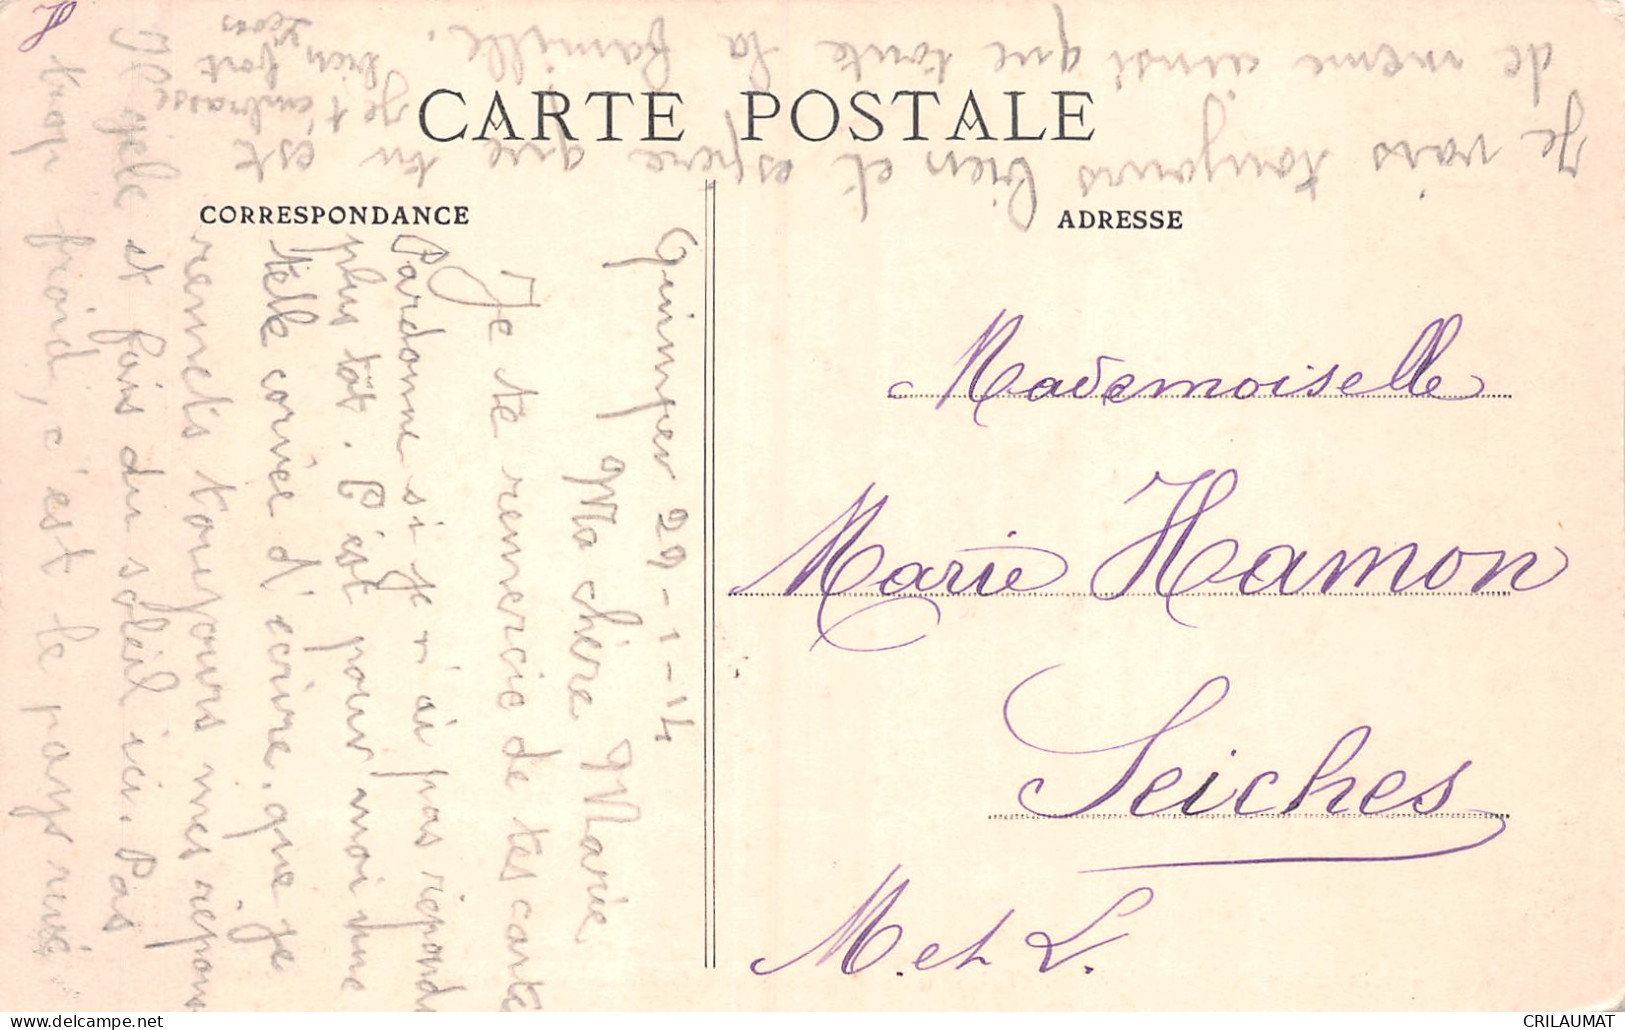 CARTE POSTALE
CORRESPONDANCE
ADRESSE
Quimper 29-1-14
Ma chère Marie
Je te remercie de tes cartes
Pardonne si je n'ai pas répondu
plus tôt. C'est pour moi une
telle corvée d'écrire. que je
remets toujours mes répon
Il gèle et fais du soleil ici. Pas
trop froid, c'est le pays rêvé.
Je vais toujours bien et espère que tu est
de même ainsi que toute la famille.
Je t'embrasse
bien fort
Mademoiselle
Marie Hamon
Seiches
M. et L.
CRILAUMAT